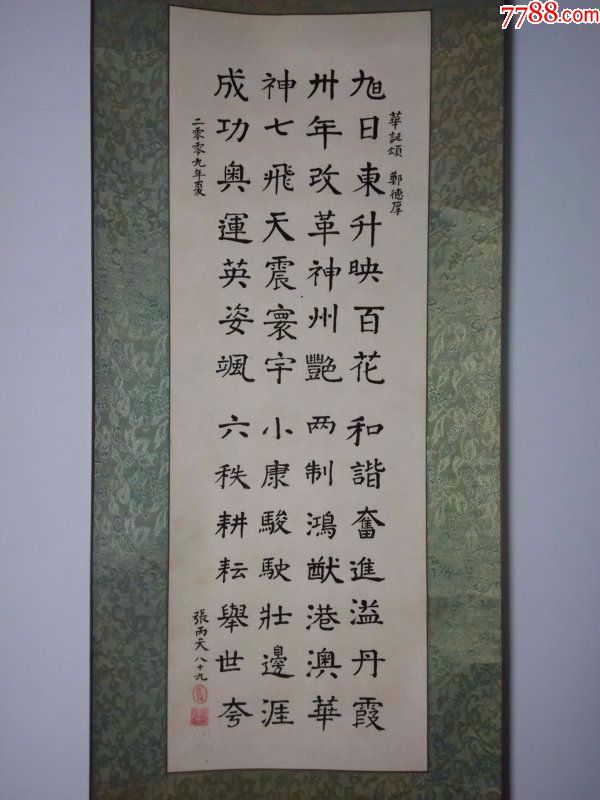 7788.com
華誕頌 鄭德厚
旭日東升映百花 和諧奮進溢丹霞
卅年改革神州艷 两制鴻猷港澳華
神七飛天震寰宇 小康駿駛壯邊涯
成功奥運英姿颯 六秩耕耘舉世夸
二零零九年夏
張丙天八十九